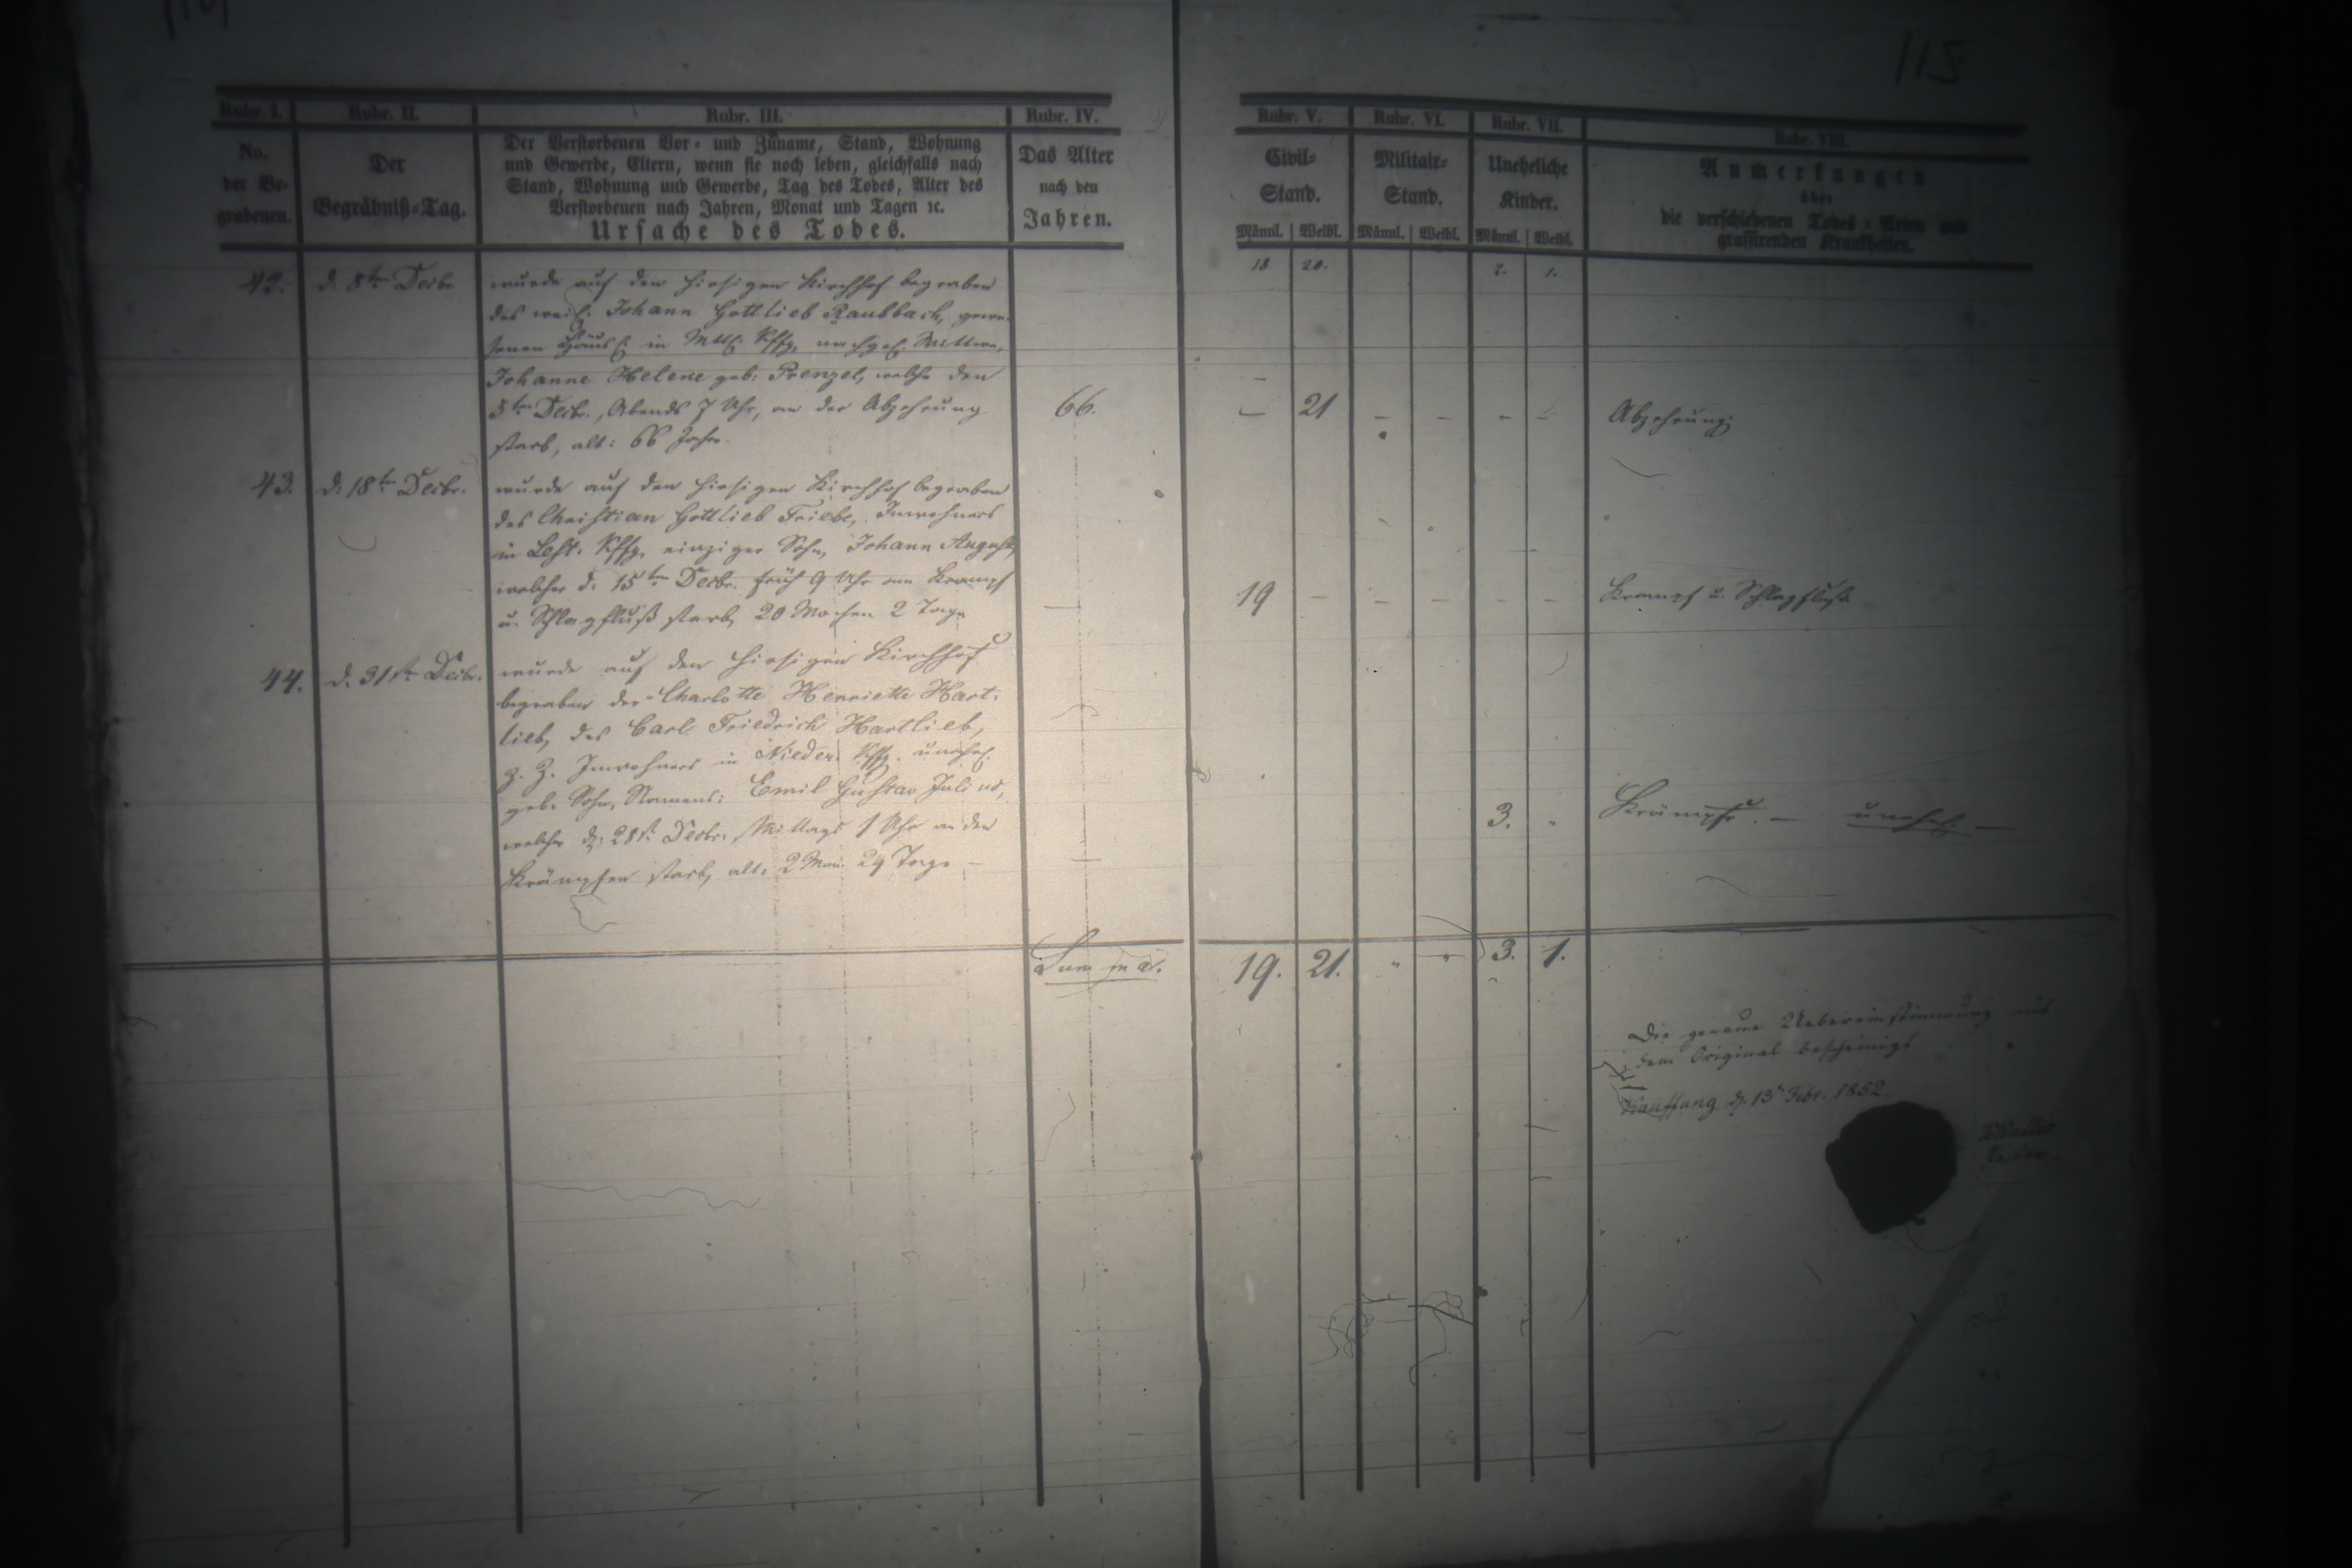 115
Rubr. I.
No.
der Be-
grabenen.
Rubr. II.
Der
Begräbniß-Tag.
Rubr. III.
Der Verstorbenen Vor- und Zuname, Stand, Wohnung
und Gewerbe, Eltern, wenn sie noch leben, gleichfalls nach
Stand, Wohnung und Gewerbe, Tag des Todes, Alter des
Verstorbenen nach Jahren, Monat und Tagen ꝛc.
Ursache des Todes.
Rubr. IV.
Das Alter
nach den
Jahren.
Rubr. V.
Civil-
Stand.
Männl. Weibl.
Rubr. VI.
Militair-
Stand.
Männl. Weibl.
Rubr. VII.
Uneheliche
Kinder.
Männl. Weibl.
Rubr. VIII.
Anmerkungen
über
die verschiedenen Todes-Arten und
grassirenden Krankheiten.
18 20. 2. 1.
42. d. 5ten Decbr
wurde auf den hiesigen Kirchhof begraben
des weil. Johann Gottlieb Raubbach, gewe-
senen Häusl. in Mttl. Kffg. nachgel. Wittwe,
Johanne Helene geb: Prenzel, welche den
Decbr., Abends 7 Uhr, an der Abzehrung
starb, alt: 66 Jahr.
66.
– 21 – – – –
Abzehrung.
43. d: 18ten Decbr.
wurde auf den hiesigen Kirchhof begraben
des Christian Gottlieb Friebe, Inwohners
in Kffg. einziger Sohn, Johann August,
welcher d. 15ten Decbr. früh 9 Uhr am Krampf
u. Schlagfluß starb, 20 Wochen 2 Tage
—
19 – – – – –
Krampf u. Schlagfluß.
44. d. 31ten Decbr.
wurde auf den hiesigen Kirchhof
begraben der Charlotte Henriette Hart-
lieb, des Carl Friedrich Hartlieb,
z. Z. Inwohners in Nieder Kffg. unehel.
geb. Sohn, Namens: Emil Gustav Julius,
welcher d. 28t. Decbr. Mittags 1 Uhr an den
Krämpfen starb, alt: 2 Mon. 29 Tage –
—
3.
Krämpfe. – unehel. –
Summa.
19. 21. " " 3. 1.
Die genaue Uebereinstimmung mit
dem Original bescheinigt
Kauffung d. 13t Febr. 1852.